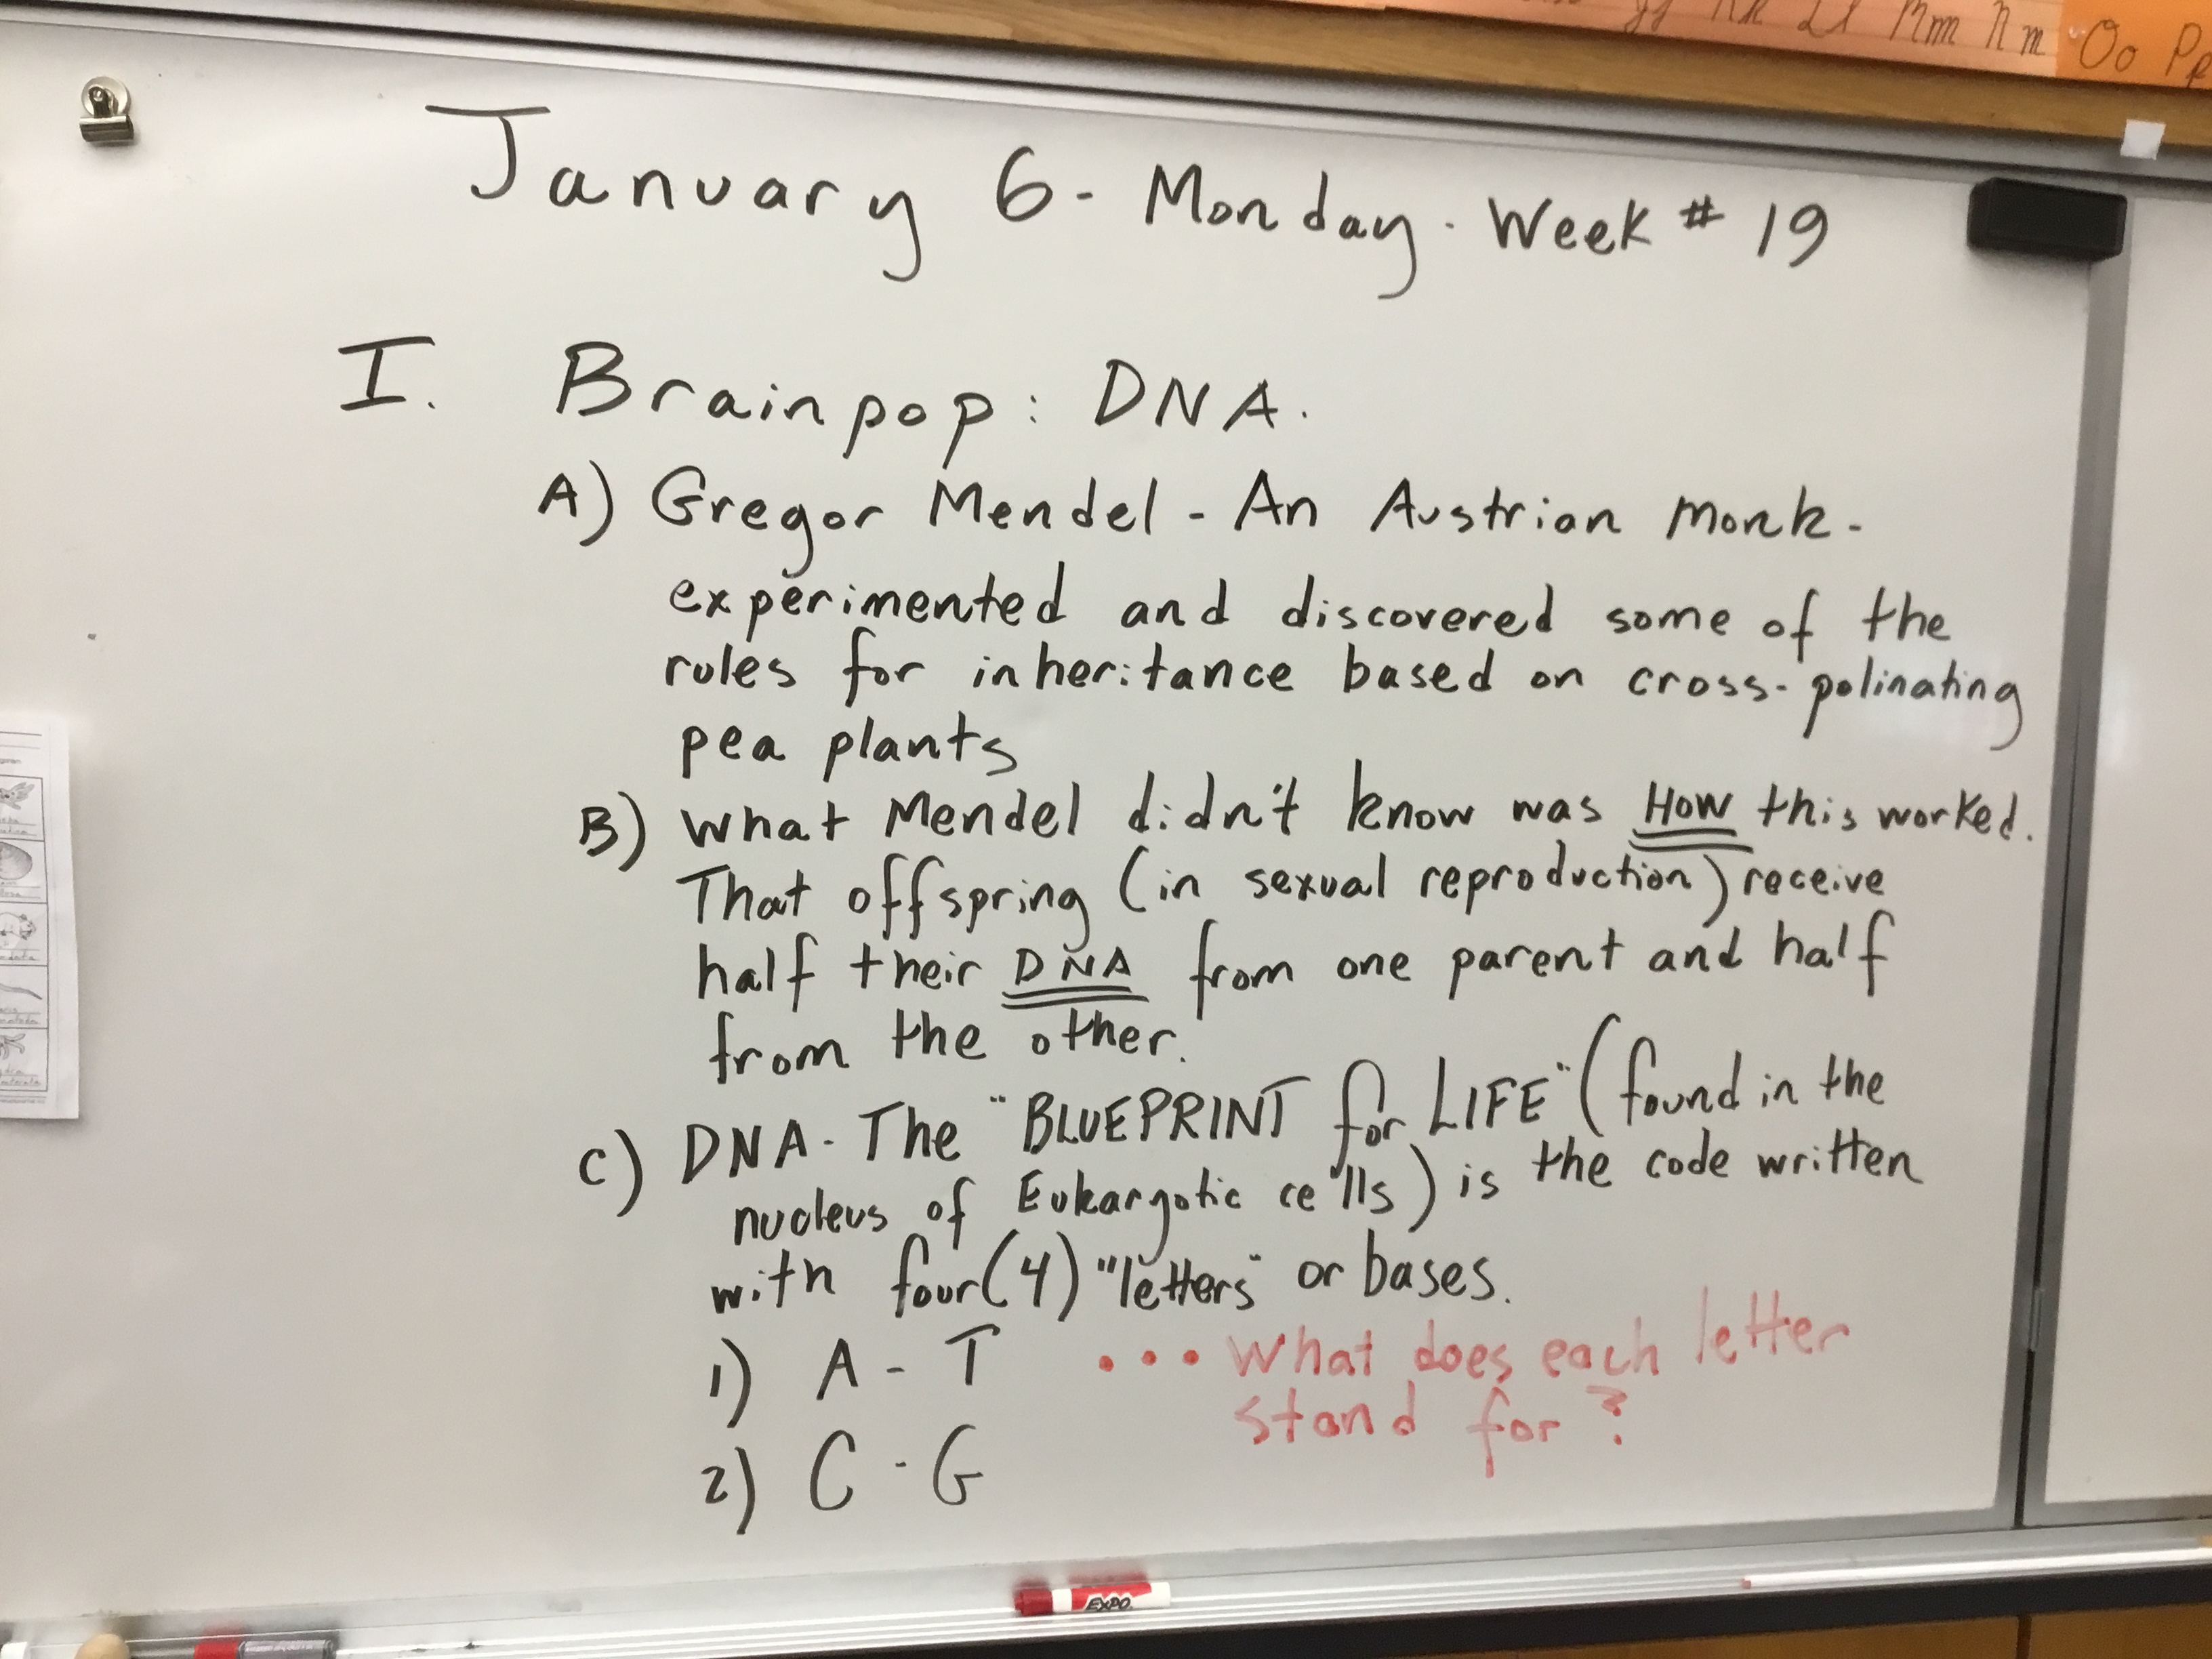 Rr Ll Mm Nn Oo Pp
January 6 - Monday - Week # 19
I. Brainpop: DNA.
A) Gregor Mendel - An Austrian Monk -
experimented and discovered some of the
rules for inheritance based on cross-polinating
pea plants
B) What Mendel didn't know was HOW this worked.
That offspring (in sexual reproduction) receive
half their DNA from one parent and half
from the other.
C) DNA - The "BLUEPRINT for LIFE" (found in the
nucleus of Eukaryotic cells) is the code written
with four (4) "letters" or bases.
1) A - T ... What does each letter
stand for?
2) C - G
EXPO